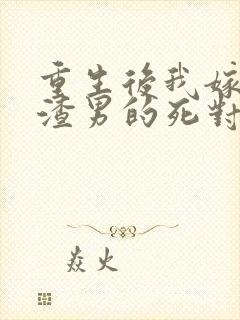 重生後我嫁
渣男的死對
焱火